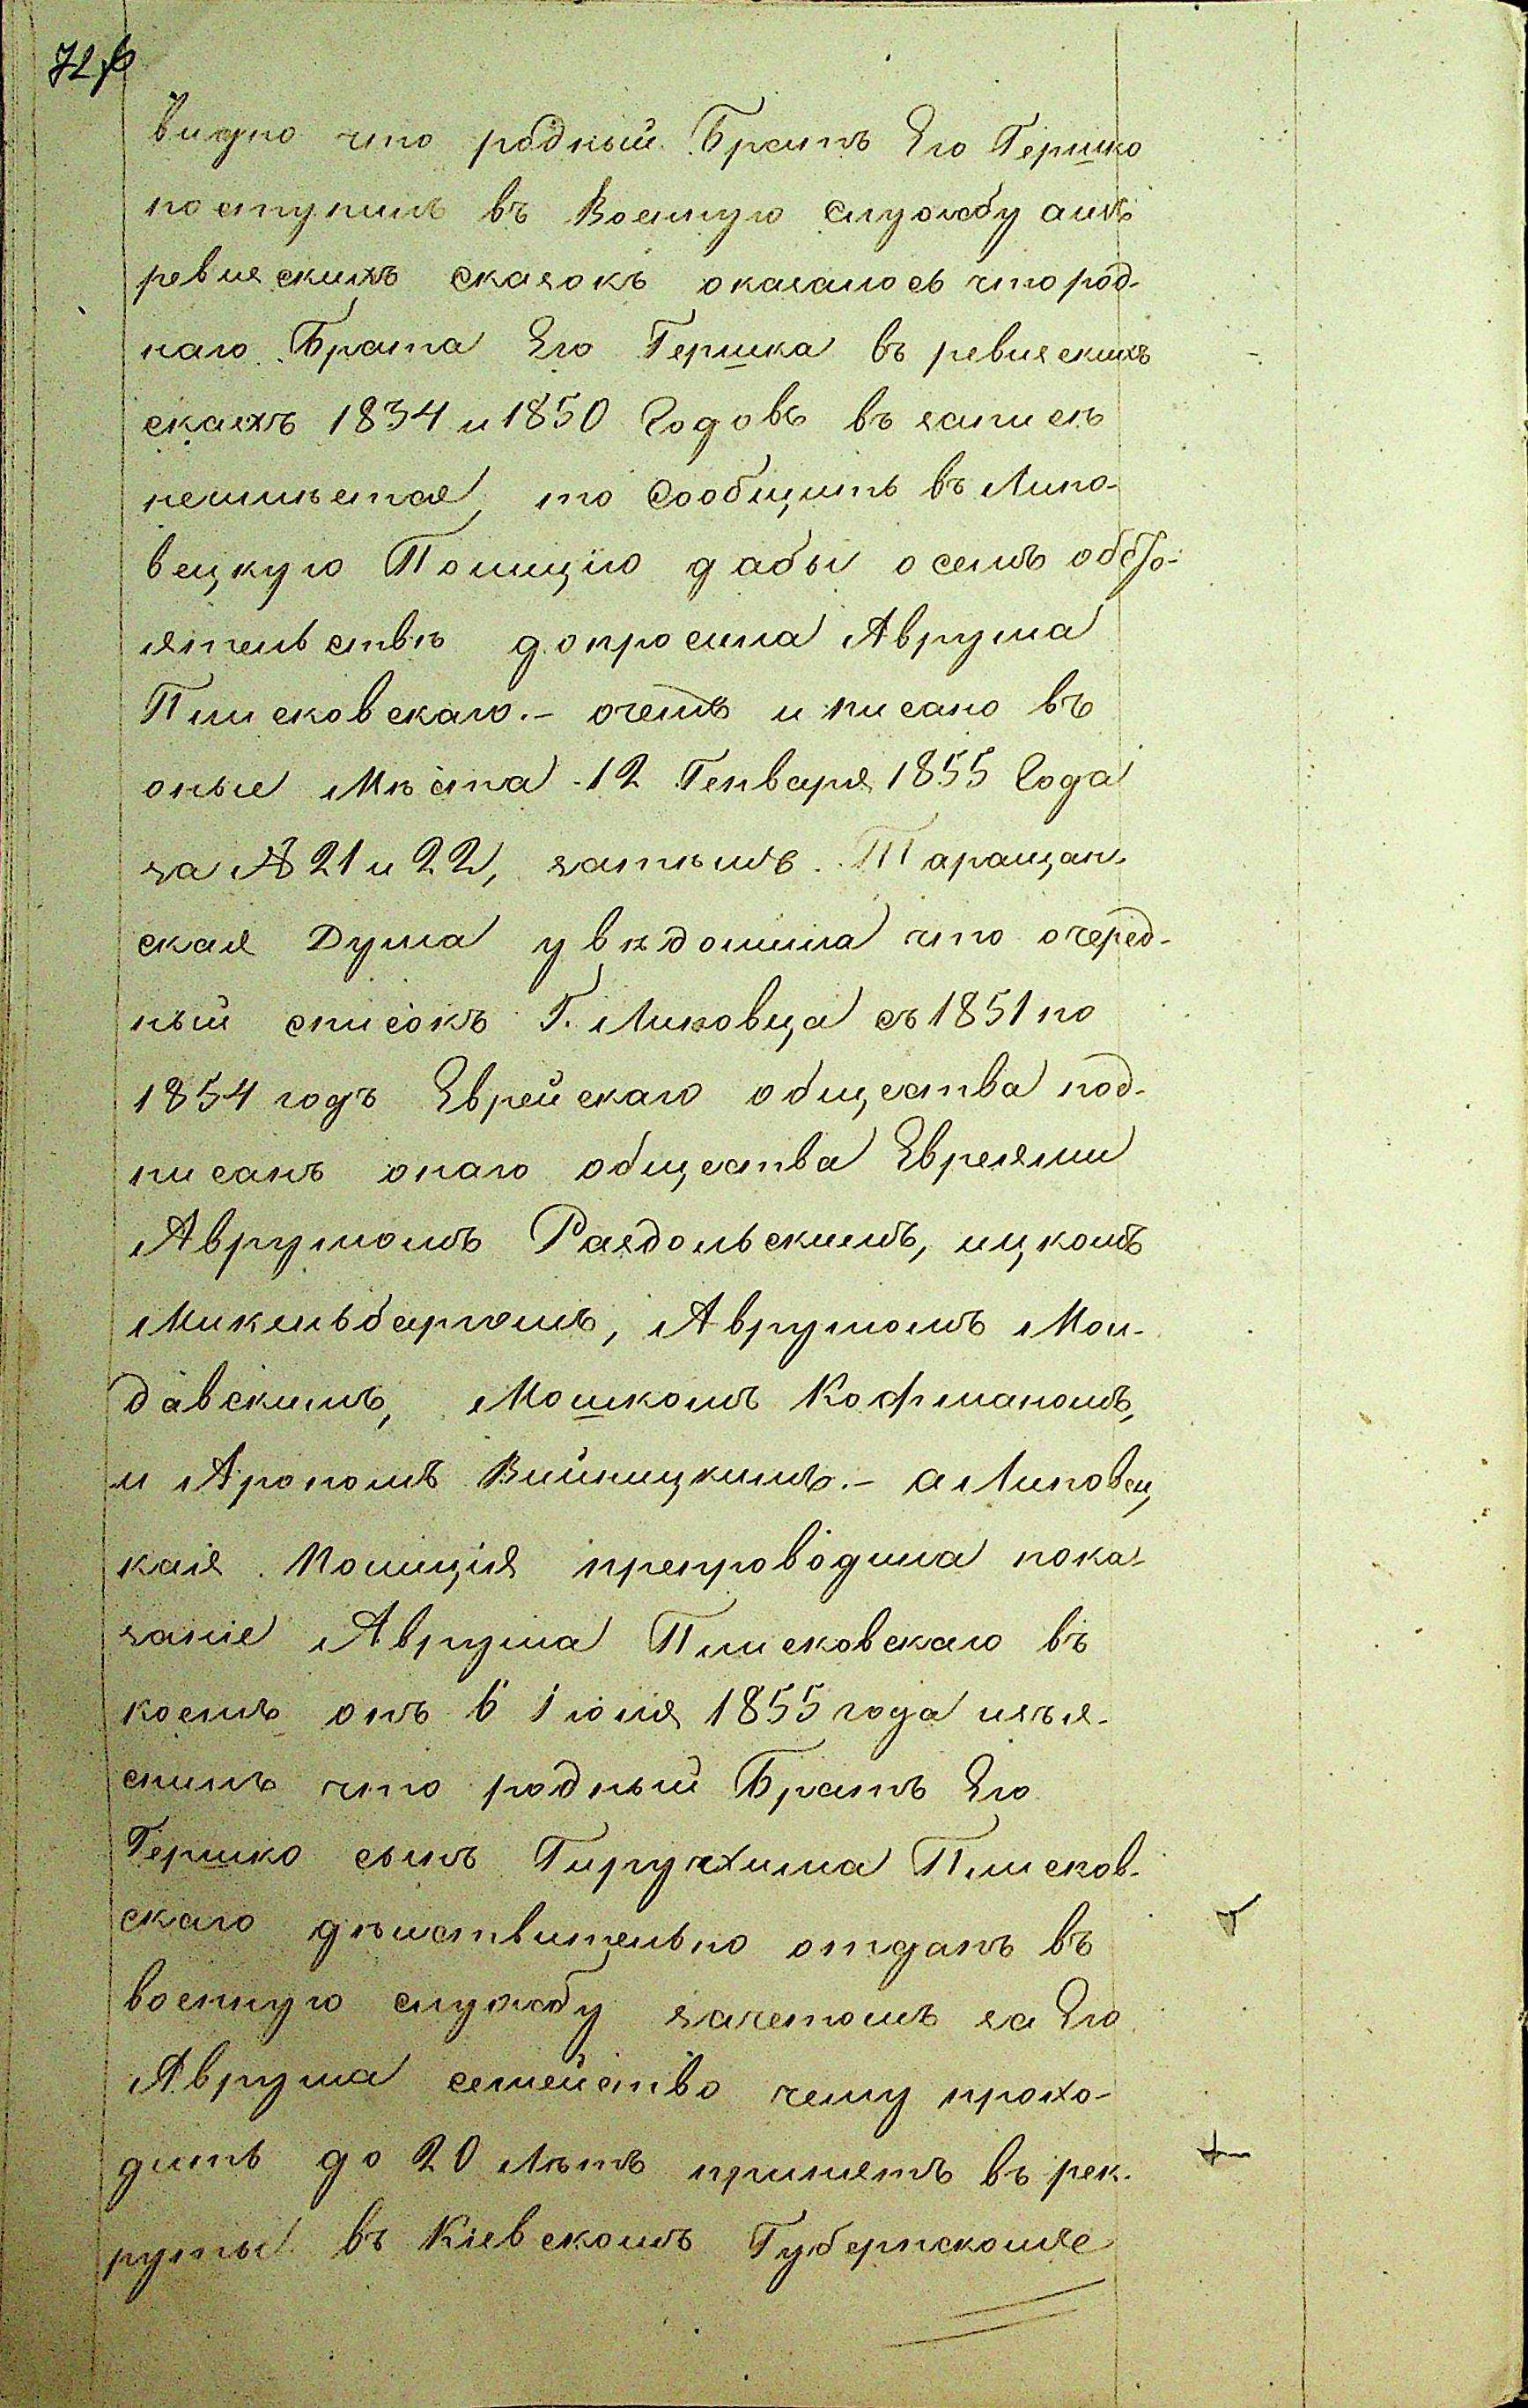 видно что родный Братъ Его Гершко
поступилъ въ Военную службу аизъ
ревизскихъ сказокъ оказалось что род-
наго Брата Его Гершка въ ревизскихъ
сказхъ 1834 и 1850 Годовъ въ записъ
неимѣется, то Сообщить въ Липо-
вецкую Полицію дабы осемъ обсто-
ятельствѣ допросила Аврума
Плисковскаго.- очемъ и писано въ
оные Мѣста 12 Генваря 1855 Года
за № 21 и 22, затѣмъ Таращан-
ская Дума увѣдомила что очеред-
ный списокъ Г. Липовца съ 1851 по
1854 годъ Еврейскаго общества под-
писанъ онаго общества Евреями
Аврумомъ Раздольскимъ, ицкомъ
Микельбаргомъ, Аврумомъ Мол-
давскимъ, Мошкомъ Кофманомъ,
и Арономъ Винницкимъ.- а Липовец
кая Полиція препроводила пока-
заніе Аврума Плисковскаго въ
коемъ онъ 6 Іюля 1855 года изъя-
снилъ что родный Братъ Его
Гершко сынъ Гирухима Плисков-
скаго дѣйствительно отданъ въ
военную службу зачетомъ за Его
Аврума семейство чему прохо-
дитъ до 20 Лѣтъ принятъ въ рек-
руты въ Кіевскомъ Губернскомъ